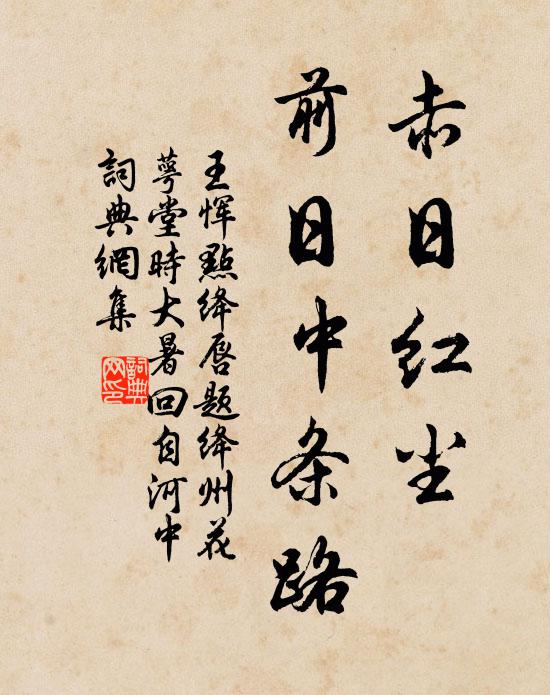 赤日红尘
前日中条路
王恽點绛唇题绛州花
萼堂時大暑回自河中
詞典網集
詞典网印